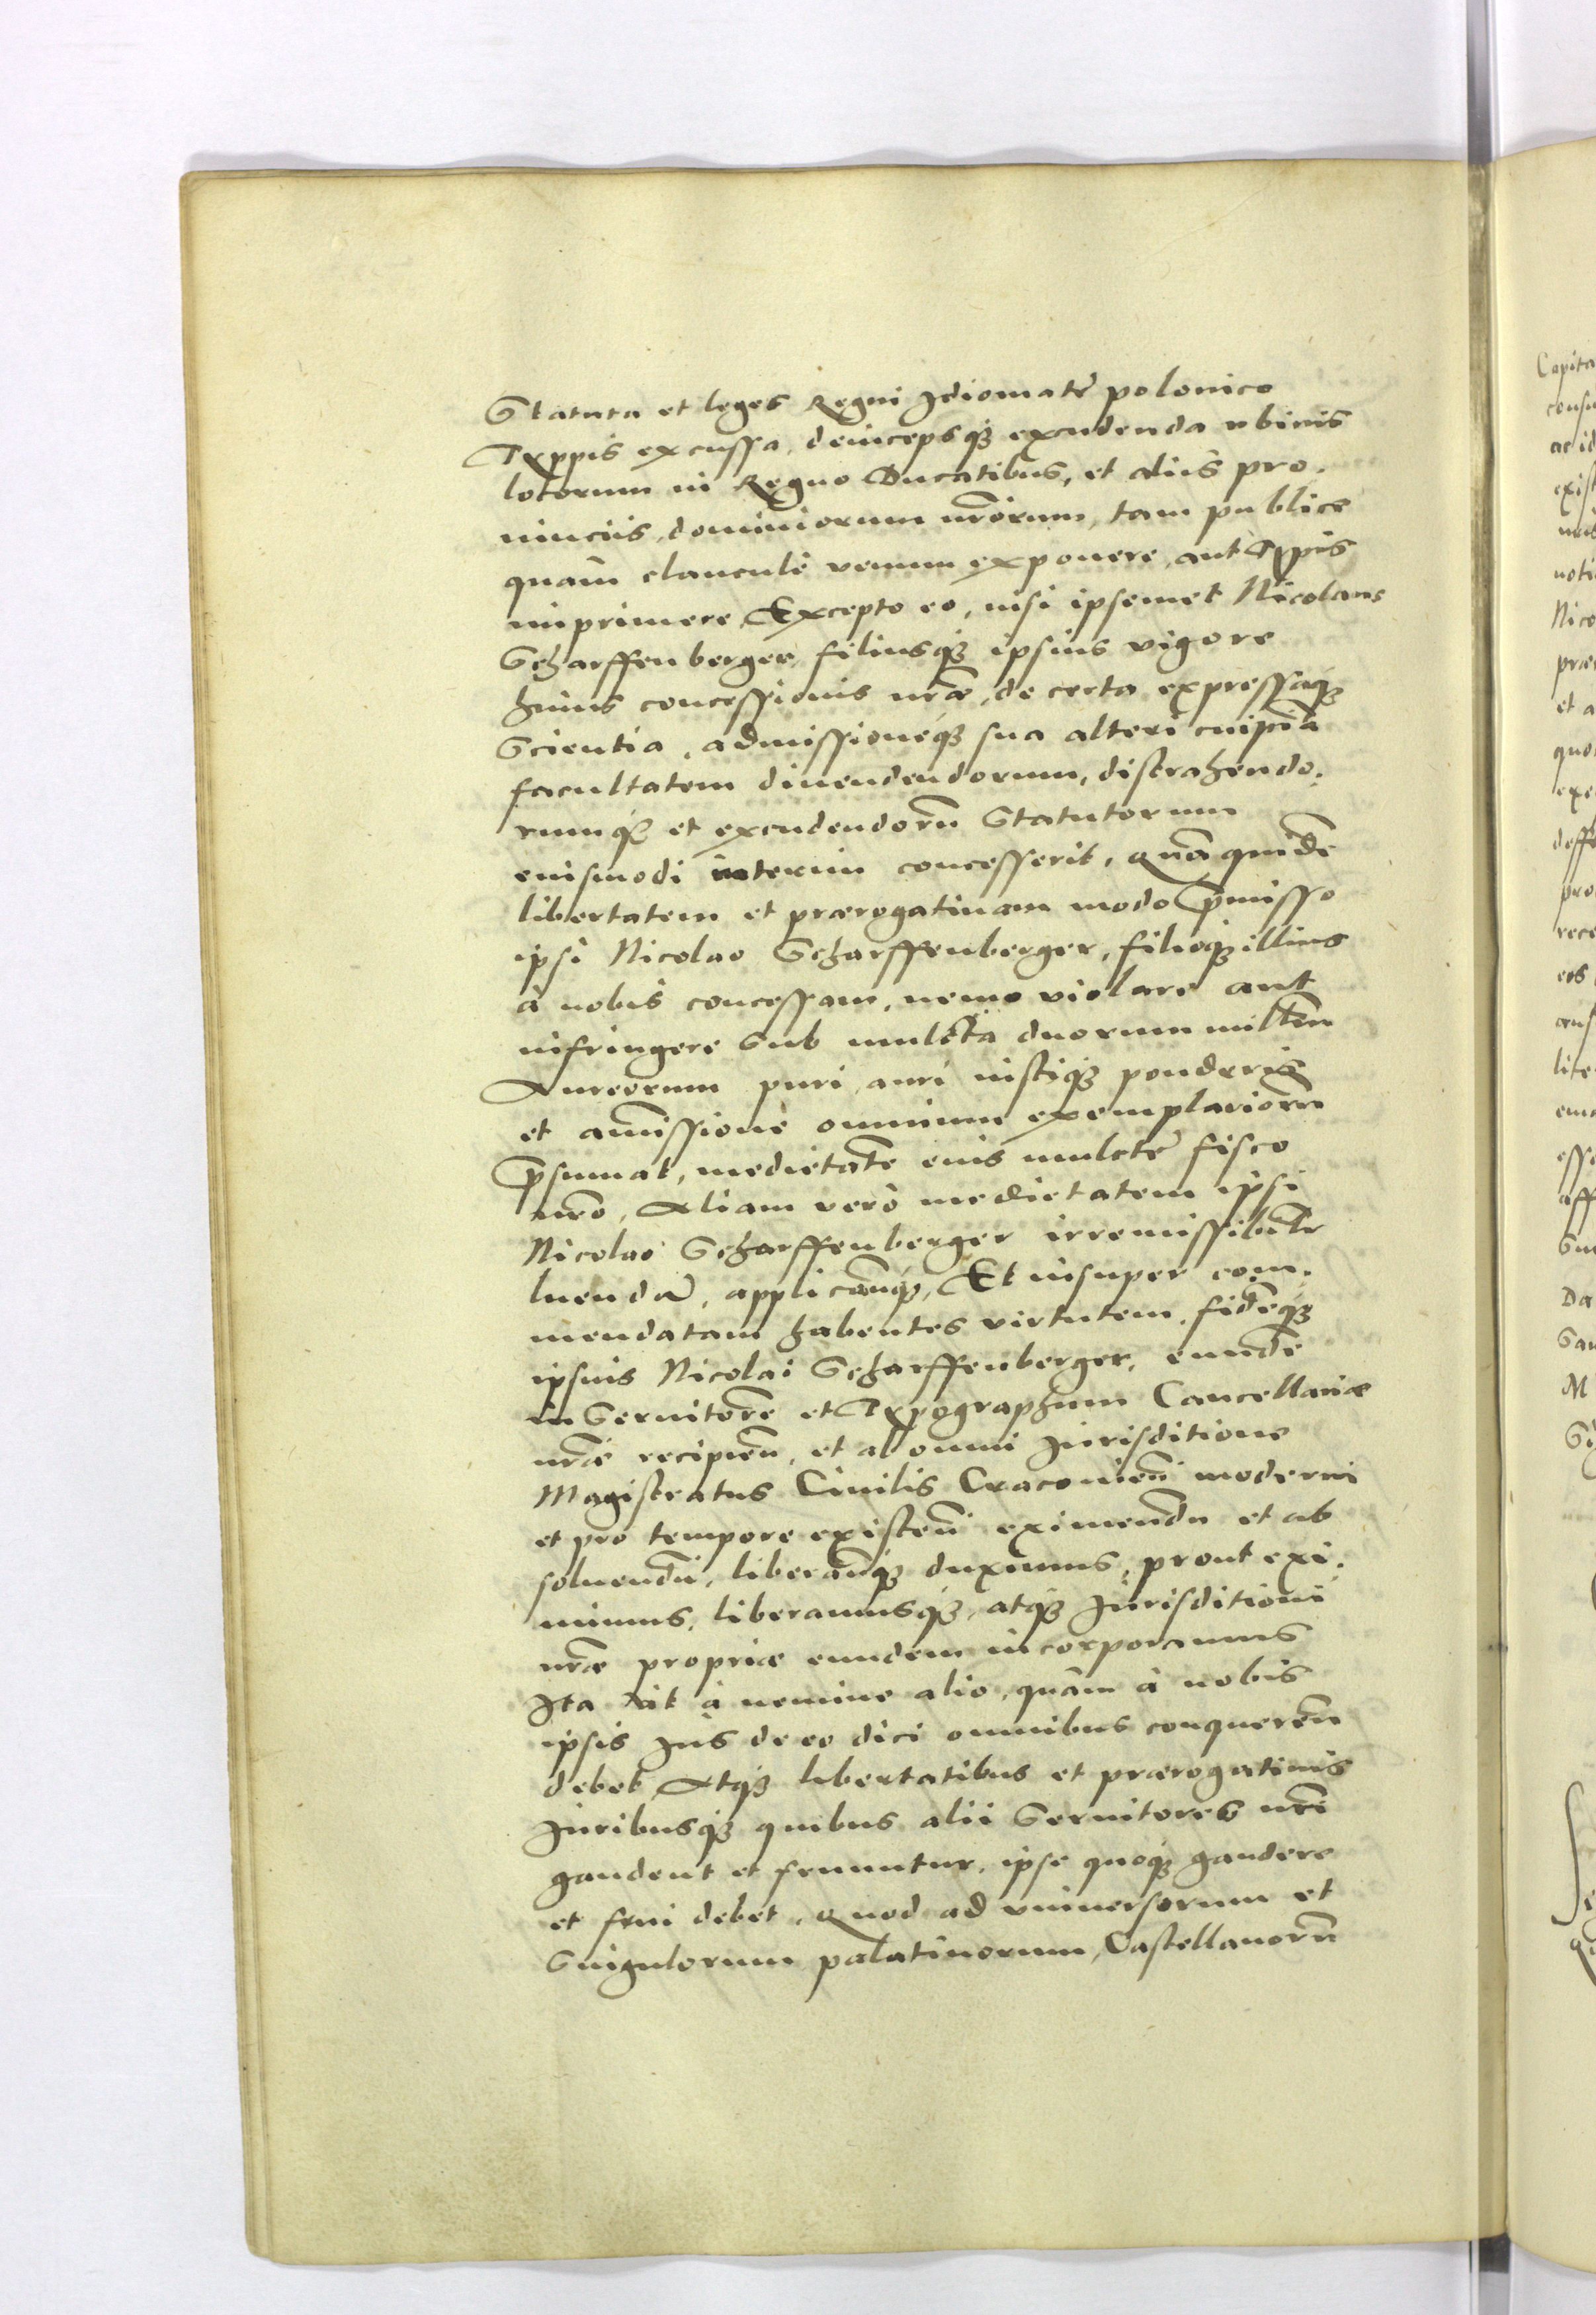 Statuta et leges Regni Idiomate polonico
Typpis excussa, deincepsq3 excudenda ubiuis
locorum in Regno Ducatibus, et aliis pro.
uinciis, dominiorum nr̃orum, tam publice
quàm clanculè venum exponere, aut Typis
imprimere, Excepto eo, nisi ipsemet Nicolaus
Scharffenberger filiusq3 ipsius vigore
huius concessionis nr̃æ, de certa expressaq3
Scientia, admissioneq3 sua alteri cuipiã
facultatem diuendendorum, distrahendo.
rumq3 et excudendorũ Statutorum
eiusmodi interim concesserit, Quã quidẽ
libertatem et prærogatiuam modo p̃misso
ipsi Nicolao Scharffenberger, filioq3 illius
à nobis concessam, nemo violare aut
infringere Sub mulcta duorum milleñ
Aureorum puri auri iustiq3 ponderis
et amissione omnium exemplariorũ
p̃sumat, medietatẽ eius mulctæ fisco
nr̃o, Aliam verò medietatem ipsi
Nicolao Scharffenberger irremissibilr̃
luendã, applicañq3, Et insuper com.
mendatam habentes virtutem, fidẽq3
ipsius Nicolai Scharffenberger, eundẽ
in Seruitorẽ et Typographum Cancellariæ
nr̃æ recipieñ, et ab omni Jurisditione
Magistratus Ciuilis Cracouieñ moderni
et pro tempore existeñ eximendũ et ab
soluendũ, liberañq3 duximus, prout exi.
mimus, liberamusq3, atq3 Jurisditioni
nr̃æ propriæ eundem incorporamus
Ita vt à nemine alio, quàm à nobis
ipsis Jus de eo dici omnibus conquereñ
debet, Atq3 libertatibus et prærogatiuis
Juribusq3 quibus alii Seruitores nr̃i
gaudent et fruuntur, ipse quoq3 gaudere
et frui debet, Quod ad vniuersorum et
Singulorum palatinorum, Castellanorũ